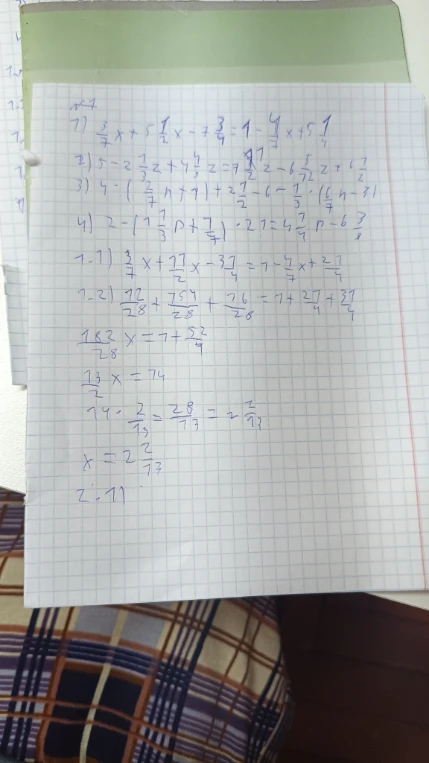 №1
1) 3/7 x + 5 1/2 x - 7 3/4 = 1 - 4/7 x + 5 1/4
2) 5 - 2 1/3 z + 4 4/3 z = 7 z - 6 5/12 z + 6 1/2
3) 4 - ( n + 1) + 2 1/2 - 6 - 1/3 · (6/7 n - 3)
4) 2 - (1 1/3 n + 1/7) · 21 = 4 1/4 n - 6 3/8
1.1) 3/7 x + 11/2 x - 31/4 = 1 - 4/7 x + 21/4
1.2) 12/28 + 154/28 + 16/28 = 1 + 21/4 + 31/4
182/28 x = 1 + 52/4
13/2 x = 14
14 · 2/13 = 28/13 = 2 2/13
x = 2 2/13
2.1)